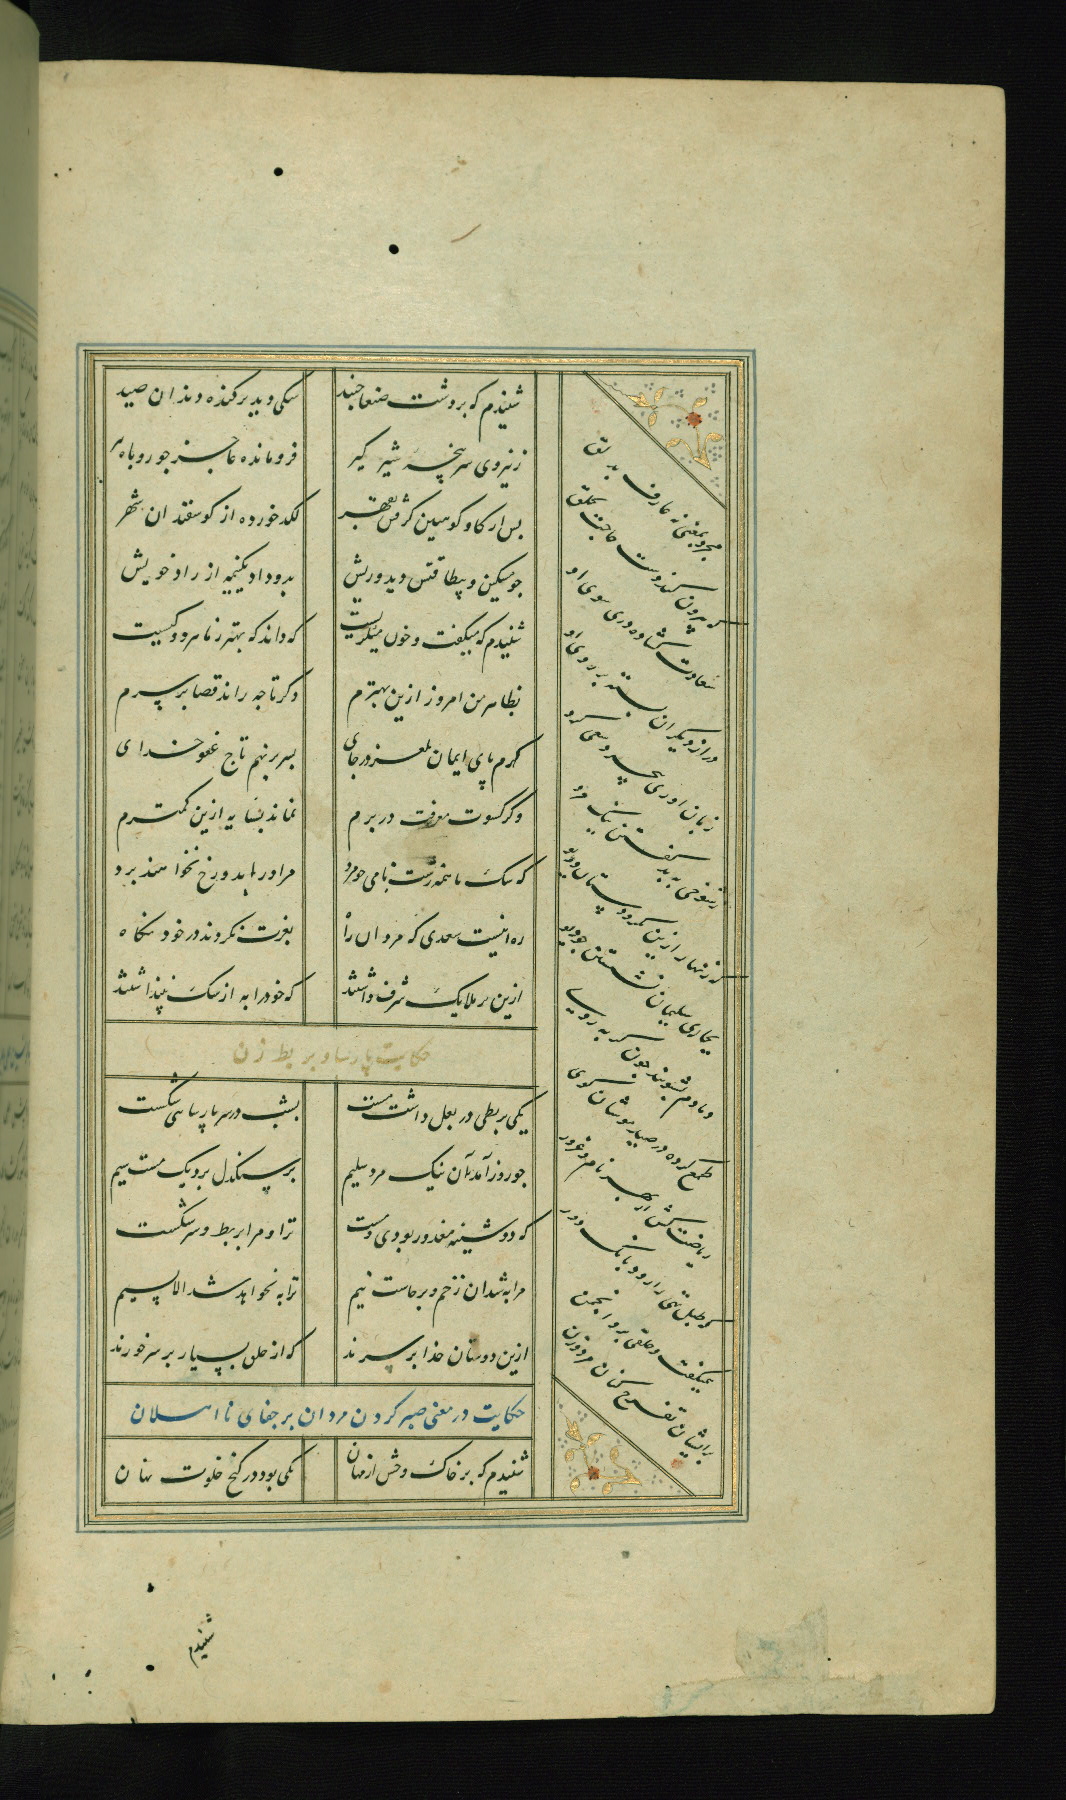 شنیدم که بر دشت صنعا جنید سگی دید برکنده دندان صید
ز نیروی سرپنجه شیر گیر فرومانده عاجز چو روباه پیر
پس از گاو کوهی گرفتن بقهر لگد خورده از گوسفندان شهر
چو مسکین و بیطاقتش دید و ریش بدو داد یک نیمه از زاد خویش
شنیدم که میگفت و خون میگریست که داند که بهتر ز ما هر دو کیست
بظاهر من امروز ازین بهترم دگر تا چه راند قضا بر سرم
گرم پای ایمان نلغزد ز جای بسر برنهم تاج عفو خدای
وگر کسوت معرفت در برم نماند بسا به ازین کمترم
که سگ با همه زشت نامی چو مرد مر او را بدوزخ نخواهند برد
ره اینست سعدی که مردان راه بعزت نکردند در خود نگاه
ازین بر ملایک شرف داشتند که خود را به از سگ نپنداشتند
حکایت پارسا و بربط زن
یکی بربطی در بغل داشت مست بشب در سر پارسایی شکست
چو روز آمد آن نیک مرد سلیم بر سنگدل برد یک مشت سیم
که دوشینه مغدور بودی و مست ترا و مرا بربط و سر شکست
مرا به شد آن زخم و برخاست بیم ترا به نخواهد شد الا بسیم
ازین دوستان خدا بر سرند که از خلق بسیار بر سر خورند
حکایت در معنی صبر کردن مردان بر جفای نا اهلان
شنیدم که بر خاک وخش از مهان یکی بود در کنج خلوت نهان
مجرد بمعنی نه عارف بدلق
که بیرون کند دست حاجت بخلق
سعادت گشاده دری سوی او
در از دیگران بسته بر روی او
زبان آوری بیخرد سعی کرد
ز شوخی به بد گفتن نیک مرد
که زنهار ازین مکر و دستان و ریو
بجای سلیمان نشستن چو دیو
دمادم بشویند چون گربه روی
طمع کرده در صید موشان کوی
ریاضت کش از بهر نام و غرور
که طبل تهی را رود بانگ دور
همیگفت و خلقی برو انجمن
بر ایشان تفرج کنان مرد و زن
شنیدم